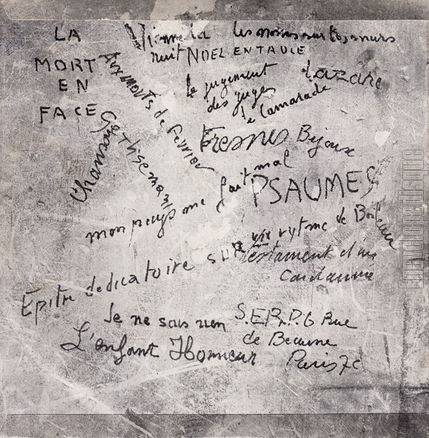 LA MORT EN FACE
Vienne la nuit
les noms sur les murs
NOEL EN TAULE
le jugement des juges
Lazare
le Camarade
Aux morts de février
Gethsemani
Chanson
Fresnes
Bijoux
mon pays me fait mal
PSAUMES
Epitre dedicatoire SUR un rytme de Boileau
Testament d'un Condamné
Je ne sais rien
L'enfant Honneur
S.E.R.P. 6 Rue
de Beaune
Paris 7e